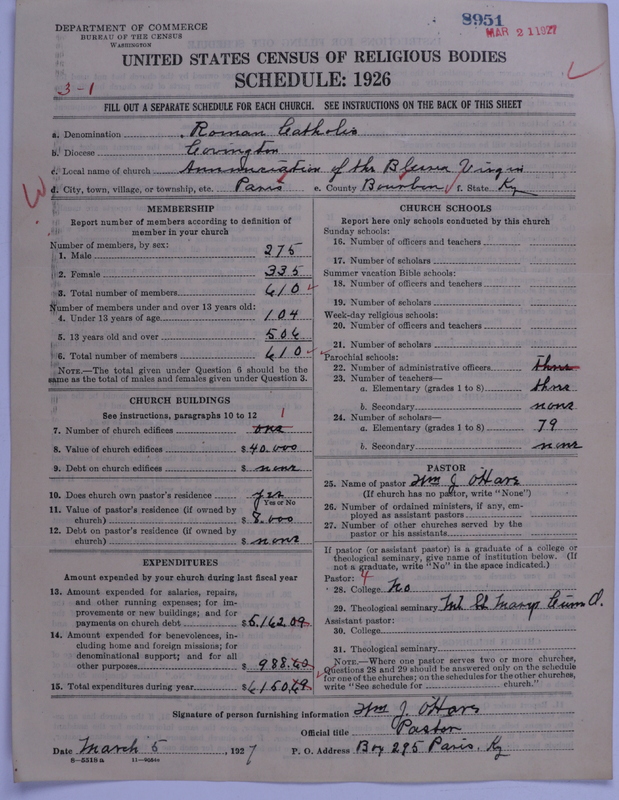 DEPARTMENT OF COMMERCE
BUREAU OF THE CENSUS
WASHINGTON
8951
MAR 21 1927
UNITED STATES CENSUS OF RELIGIOUS BODIES
SCHEDULE: 1926
3-1
FILL OUT A SEPARATE SCHEDULE FOR EACH CHURCH. SEE INSTRUCTIONS ON THE BACK OF THIS SHEET
a. Denomination Roman Catholic
b. Diocese Covington
c. Local name of church Annunciation of the Blessed Virgin
d. City, town, village, or township, etc. Paris e. County Bourbon f. State Ky
MEMBERSHIP
Report number of members according to definition of
member in your church
Number of members, by sex:
1. Male 275
2. Female 335
3. Total number of members 610
Number of members under and over 13 years old:
4. Under 13 years of age 104
5. 13 years old and over 506
6. Total number of members 610
NOTE.—The total given under Question 6 should be the
same as the total of males and females given under Question 3.
CHURCH BUILDINGS
See instructions, paragraphs 10 to 12
1
7. Number of church edifices one
8. Value of church edifices $40.000
9. Debt on church edifices $ none
10. Does church own pastor's residence yes
Yes or No
11. Value of pastor's residence (if owned by
church) $8.000
12. Debt on pastor's residence (if owned by
church) $ none
EXPENDITURES
Amount expended by your church during last fiscal year
13. Amount expended for salaries, repairs,
and other running expenses; for im-
provements or new buildings; and for
payments on church debt $5,162.09
14. Amount expended for benevolences, in-
cluding home and foreign missions; for
denominational support; and for all
other purposes $988.60
15. Total expenditures during year $6,150.69
CHURCH SCHOOLS
Report here only schools conducted by this church
Sunday schools:
16. Number of officers and teachers
17. Number of scholars
Summer vacation Bible schools:
18. Number of officers and teachers
19. Number of scholars
Week-day religious schools:
20. Number of officers and teachers
21. Number of scholars
Parochial schools:
22. Number of administrative officers three
23. Number of teachers—
a. Elementary (grades 1 to 8) three
b. Secondary none
24. Number of scholars—
a. Elementary (grades 1 to 8) 79
b. Secondary none
PASTOR
25. Name of pastor Wm J O'Hare
(If church has no pastor, write "None")
26. Number of ordained ministers, if any, em-
ployed as assistant pastors
27. Number of other churches served by the
pastor or his assistants
If pastor (or assistant pastor) is a graduate of a college or
theological seminary, give name of institution below. (If
not a graduate, write "No" in the space indicated.)
Pastor: 4
28. College No
29. Theological seminary Mt St Marys O.
Assistant pastor:
30. College
31. Theological seminary
NOTE.—Where one pastor serves two or more churches,
Questions 28 and 29 should be answered only on the schedule
for one of the churches; on the schedules for the other churches,
write "See schedule for church."
Signature of person furnishing information Wm J O'Hare
Official title Pastor
Date March 5, 1927 P. O. Address Box 295 Paris, Ky
8—5518 a